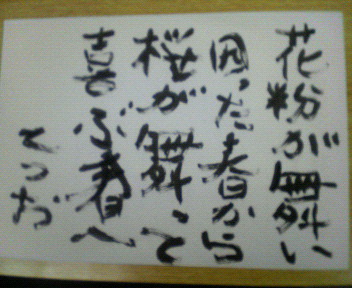 花粉が舞い
困った春から
桜が舞って
喜ぶ春へ
てつお